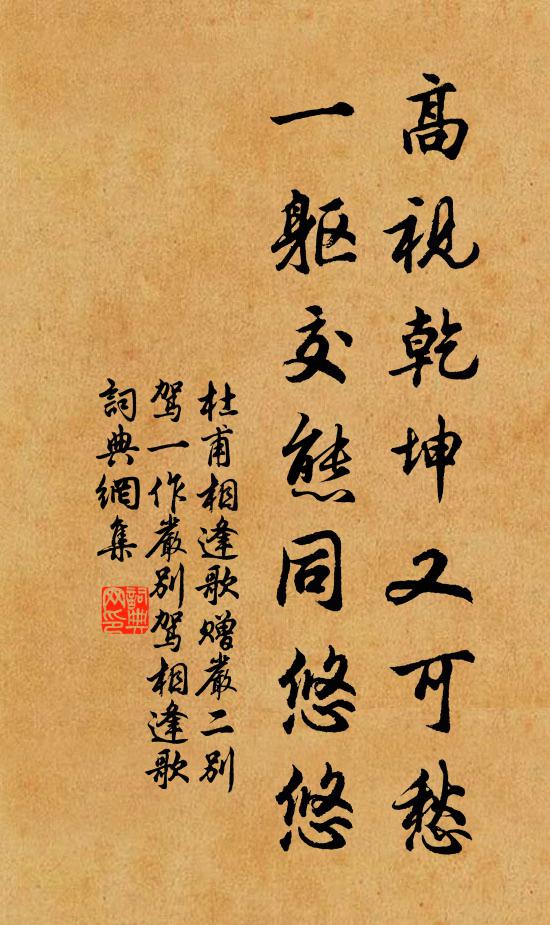 高視乾坤又可愁
一軀交態同悠悠
杜甫相逢歌贈嚴二別
駕一作嚴別駕相逢歌
詞典網集
詞典网印